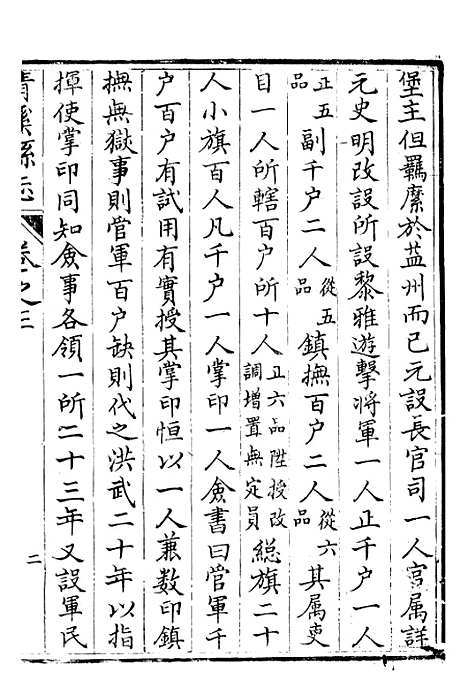 堡主但羈縻於益州而已元設長官司一人官属詳
元史明改設所設黎雅遊擊將軍一人正千户一人
正五品副千户二人從五品鎮撫百户二人從六品其属吏
目一人所轄百户所十人正六品陞授改調增置無定員総旗二十
人小旗百人凡千户一人掌印一人僉書曰管軍千
户百户有試用有實授其掌印恒以一人兼数印鎮
撫無獄事則管軍百户缺則代之洪武二十年以指
揮使掌印同知僉事各領一所二十三年又設軍民
清溪縣志 卷之三 二